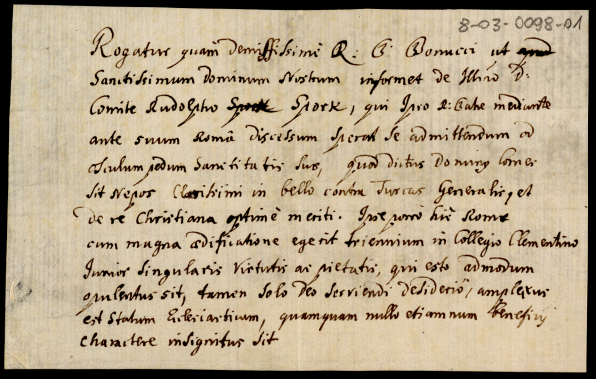 8-03-0098-01
Rogatur quam demississimè R: P: Bonucci ut
Sanctissimum Dominum Nostrum informet de Illmo D:
Comite Rudolpho Spork, qui Ipso R: Patre mediante
ante suum Româ discessum sperat se admittendum ad
osculum pedum Sanctitatis suæ, quod dictus Dominus Comes
sit Nepos Clarissimi in bello contra Turcas Generalis, et
de re Christiana optimè meriti. Ipse porrò hic Romæ
cum magna ædificatione egerit triennium in Collegio Clementino
Junior singularis virtutis ac pietatis, qui esto admodum
opulentus sit, tamen solo Deo serviendi desiderio, amplexus
est statum Ecclesiasticum, quamquam nullo etiamnum beneficij
charactere insignitus sit